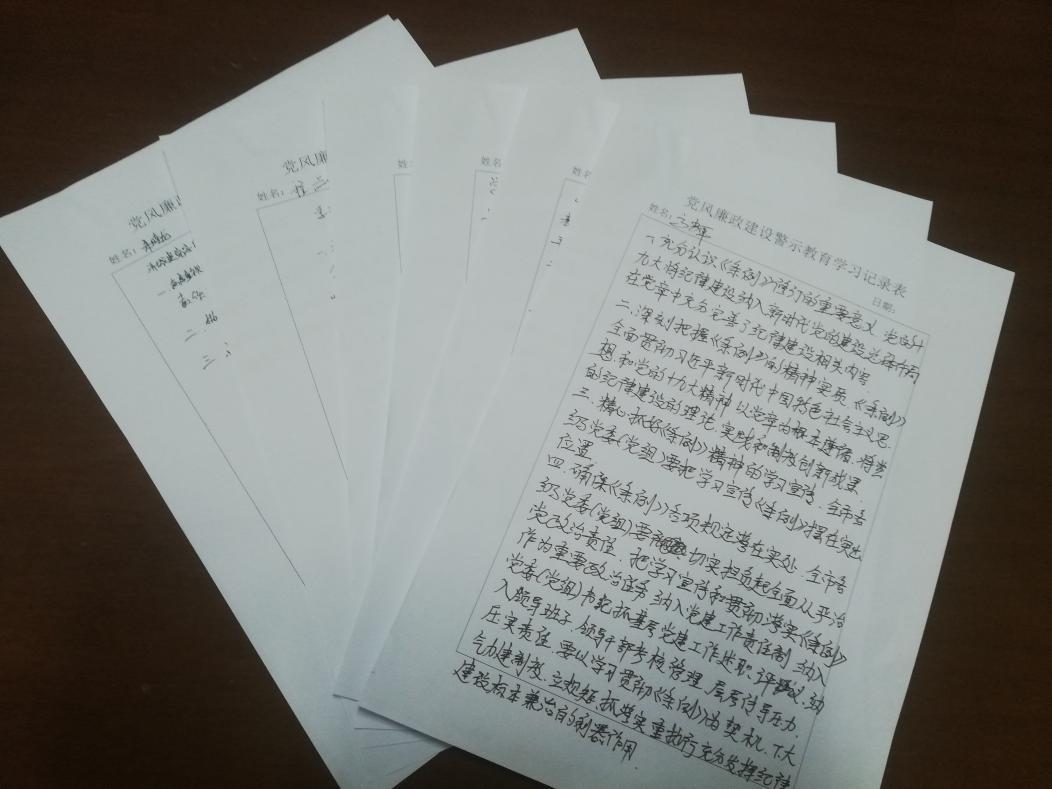 党风廉政建设警示教育学习记录表
姓名：
日期：
一.充分认识《条例》修订的重要意义.党的十
九大将纪律建设纳入新时代党的建设总体布局
在党章中充分完善了纪律建设相关内容
二.深刻把握《条例》的精神实质.《条例》
全面贯彻习近平新时代中国特色社会主义思
想和党的十九大精神以党章为根本遵循.将党
的纪律建设的理论.实践和制度创新成果.
三.精心抓好《条例》精神的学习宣传.全市各
级党委(党组)要把学习宣传《条例》摆在突出
位置.
四.确保《条例》各项规定落在实处.全市各
级党委(党组)要切实担负起全面从严治
党政治责任.把学习宣传和贯彻落实《条例》
作为重要政治任务纳入党建工作责任制纳入
党委(党组)书记抓基层党建工作述职.评议.纳
入领导班子.领导干部考核管理.层层传导压力.
压实责任.要以学习贯彻《条例》为契机.下大
气力建制度.立规矩.抓落实重执行充分发挥纪律
建设标本兼治的利器作用
党风廉
姓名：
党风廉政
姓名：
姓名
姓名
姓名